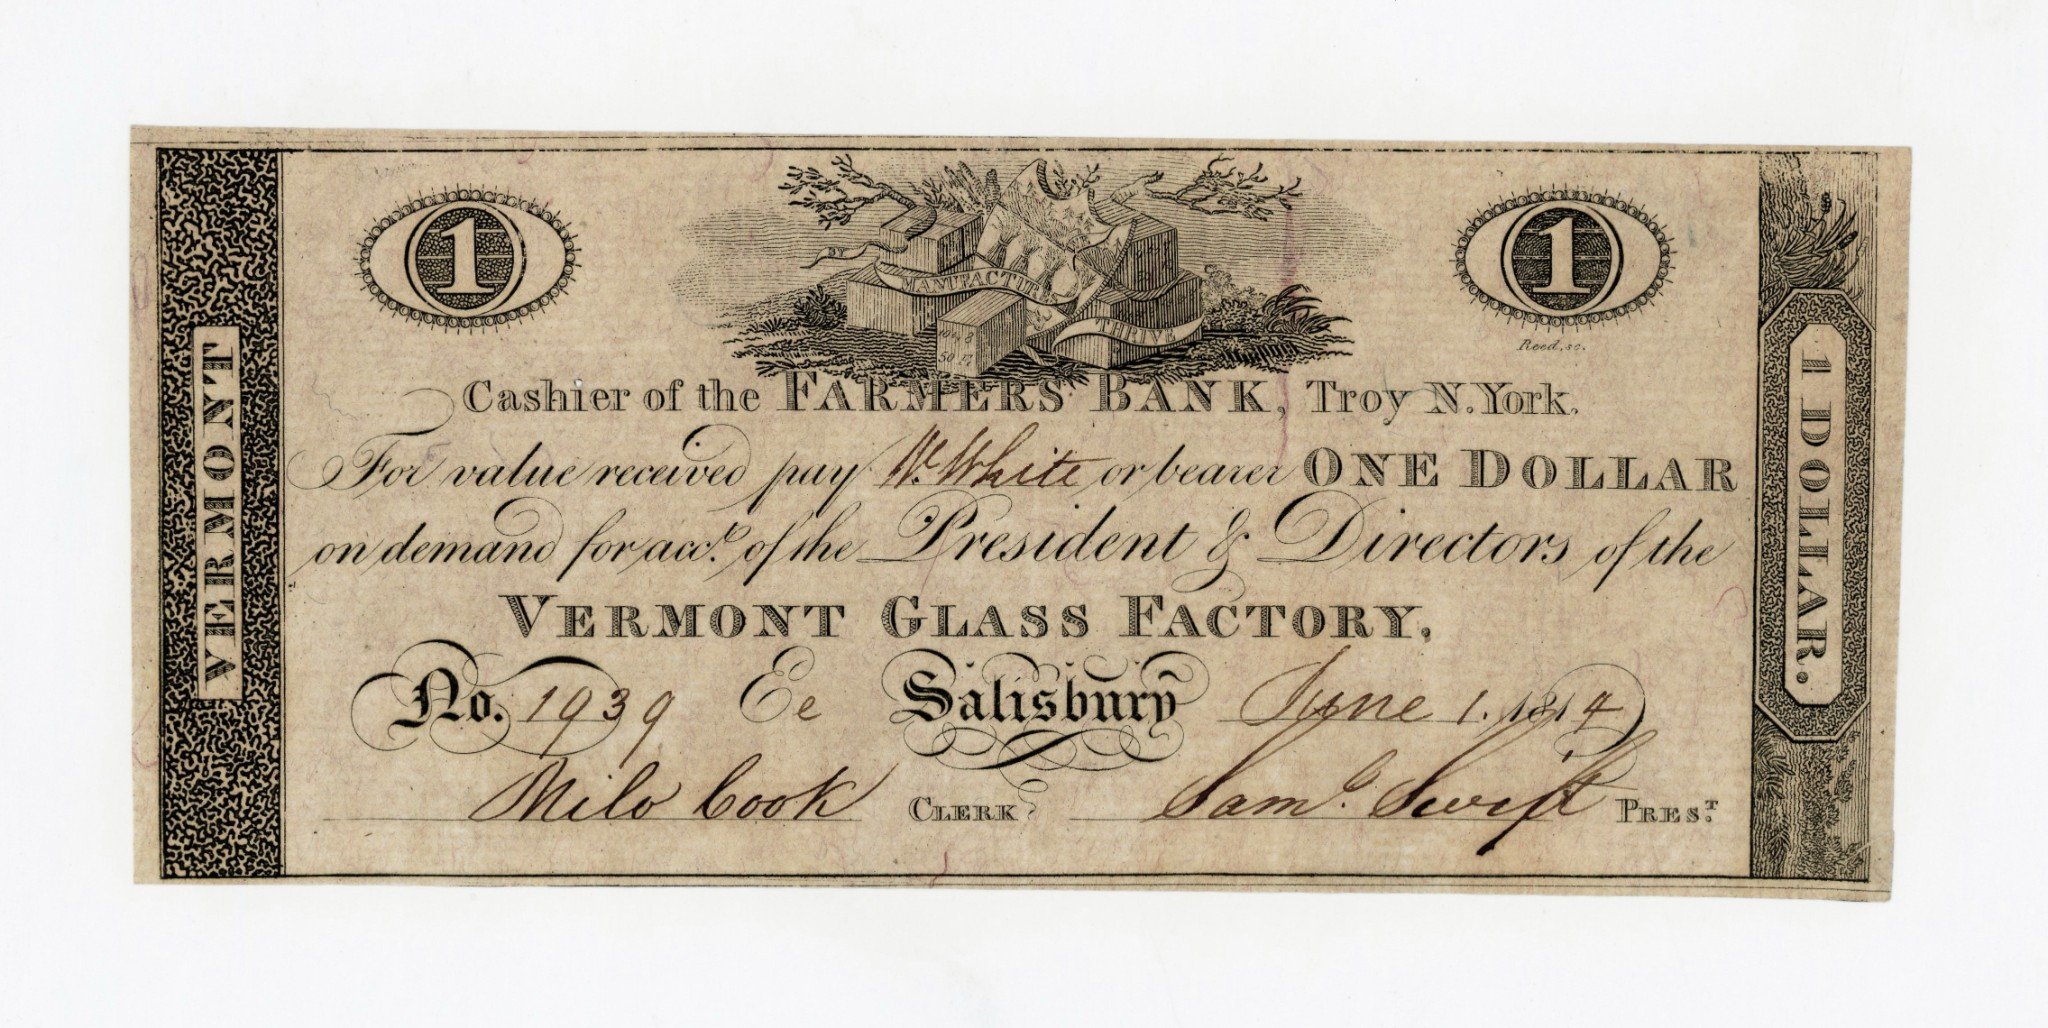 VERMONT
1
1
MANUFACTURES
THRIVE
50 17
Reed, sc.
Cashier of the FARMERS BANK, Troy N. York.
For value received pay W. White or bearer ONE DOLLAR
on demand for acct. of the President & Directors of the
VERMONT GLASS FACTORY.
No. 1939 Ee Salisbury June 1. 1814
Milo Cook CLERK Saml. Swift PREST.
1 DOLLAR.